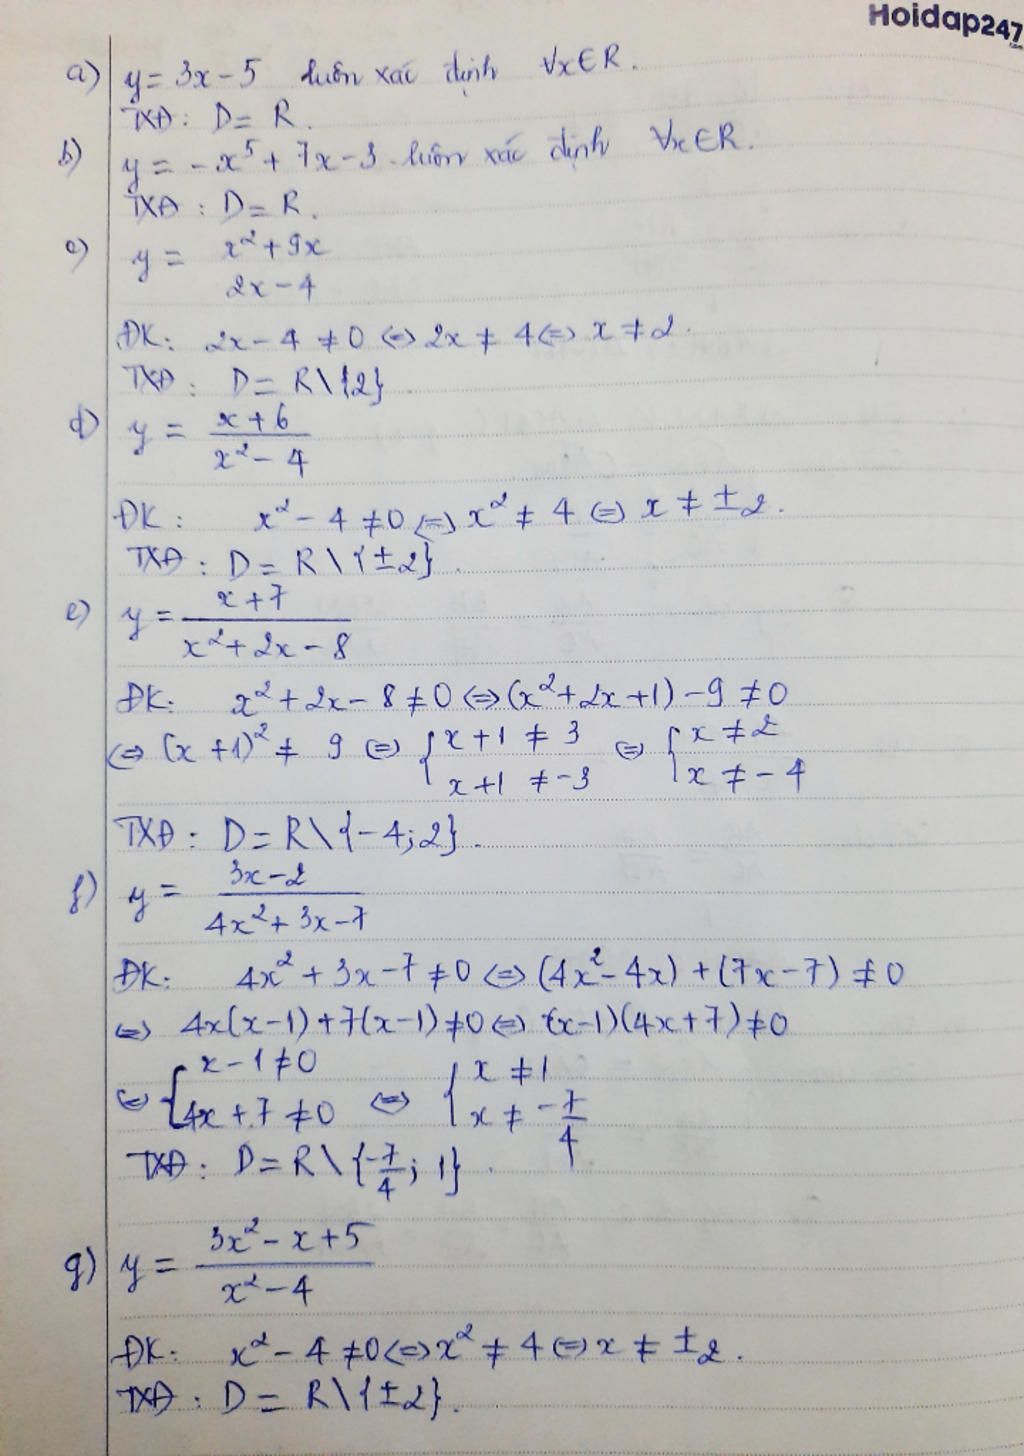 Hoidap247
.com
a) y = 3x - 5 luôn xác định ∀x∈R.
TXĐ: D = R.
b) y = -x⁵ + 7x - 3 luôn xác định ∀x∈R.
TXĐ: D = R.
c) y = x² + 9x
2x - 4
ĐK: 2x - 4 ≠ 0 ⇔ 2x ≠ 4 ⇔ x ≠ 2.
TXĐ: D = R \ {2}
d) y = x + 6
x² - 4
ĐK: x² - 4 ≠ 0 ⇔ x² ≠ 4 ⇔ x ≠ ±2.
TXĐ: D = R \ {±2}.
e) y = x + 7
x² + 2x - 8
ĐK: x² + 2x - 8 ≠ 0 ⇔ (x² + 2x + 1) - 9 ≠ 0
⇔ (x + 1)² ≠ 9 ⇔ { x + 1 ≠ 3 ⇔ { x ≠ 2
x + 1 ≠ -3 x ≠ -4
TXĐ: D = R \ {-4; 2}.
f) y = 3x - 2
4x² + 3x - 7
ĐK: 4x² + 3x - 7 ≠ 0 ⇔ (4x² - 4x) + (7x - 7) ≠ 0
⇔ 4x(x - 1) + 7(x - 1) ≠ 0 ⇔ (x - 1)(4x + 7) ≠ 0
⇔ { x - 1 ≠ 0 ⇔ { x ≠ 1
4x + 7 ≠ 0 x ≠ -7/4
TXĐ: D = R \ {-7/4; 1}.
g) y = 3x² - x + 5
x² - 4
ĐK: x² - 4 ≠ 0 ⇔ x² ≠ 4 ⇔ x ≠ ±2.
TXĐ: D = R \ {±2}.